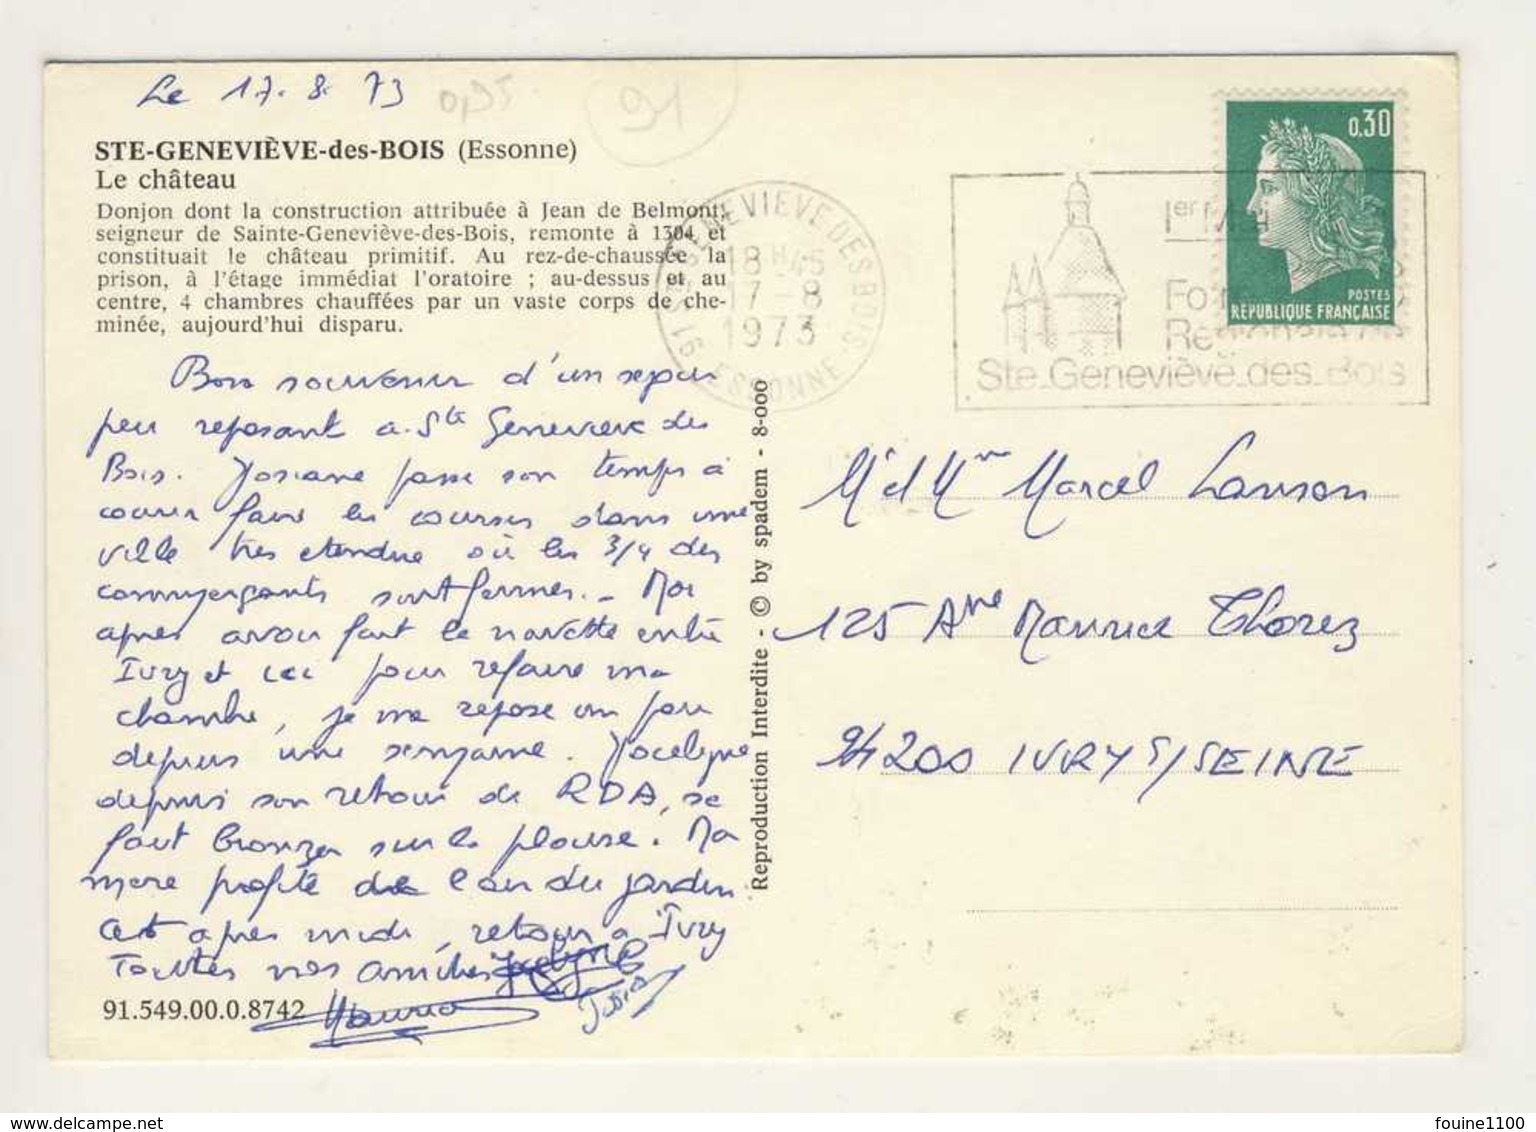 Le 17.8.73
0,95
91
STE-GENEVIÈVE-des-BOIS (Essonne)
Le château
Donjon dont la construction attribuée à Jean de Belmont,
seigneur de Sainte-Geneviève-des-Bois, remonte à 1304 et
constituait le château primitif. Au rez-de-chaussée la
prison, à l'étage immédiat l'oratoire ; au-dessus et au
centre, 4 chambres chauffées par un vaste corps de che-
minée, aujourd'hui disparu.
Bon souvenir d'un sejour
peu reposant a Ste Genevieve des
Bois. Josiane passe son temps à
courir faire les courses dans une
ville tres etendue où les 3/4 des
commerçants sont fermes. - Moi
apres avoir fait la navette entre
Ivry et ici pour refaire ma
chambre, je me repose un peu
depuis une semaine. Jocelyne
depuis son retour de RDA, se
fait bronzer sur la pelouse. Ma
mere profite de l'air du jardin.
Cet apres midi, retour a Ivry
Toutes nos amities Jocelyne
Maurice Josiane
91.549.00.0.8742
Reproduction Interdite - © by spadem - 8-000
0,30
POSTES
RÉPUBLIQUE FRANÇAISE
91 STE GENEVIEVE DES BOIS
18H45
17-8
1973
ESSONNE
1er
Ste Geneviève des Bois
Mr et Mme Marcel Lanson
125 Ave Maurice Thorez
94200 IVRY S/SEINE
fouine1100